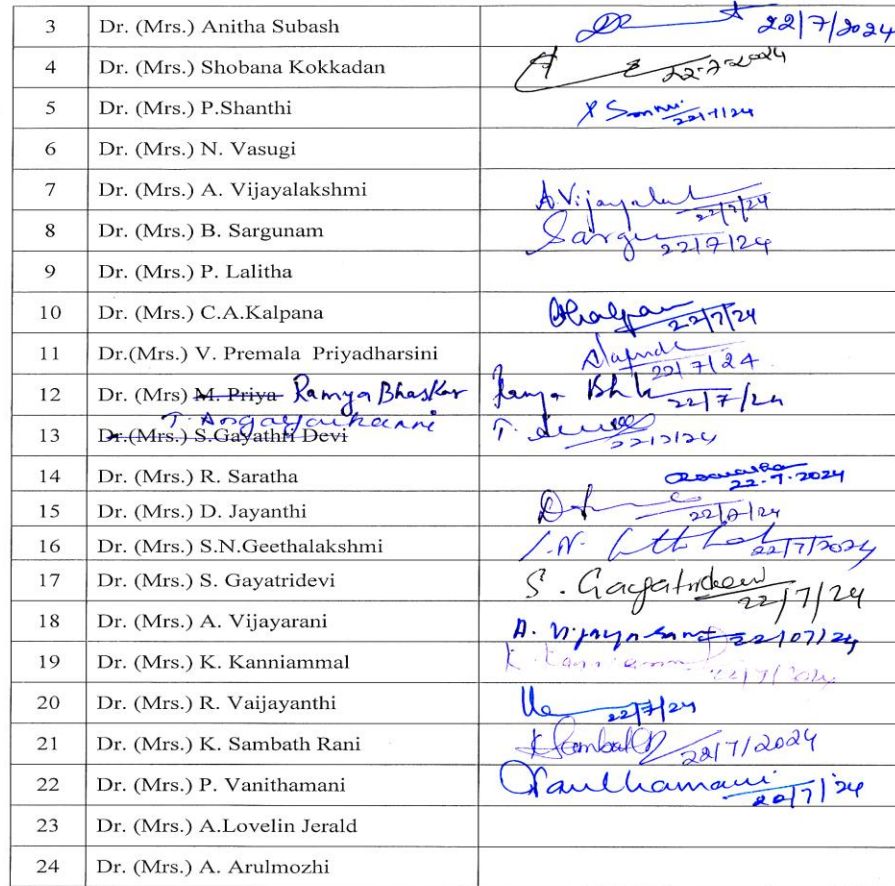 3 Dr. (Mrs.) Anitha Subash 22/7/2024
4 Dr. (Mrs.) Shobana Kokkadan 22-7-2024
5 Dr. (Mrs.) P.Shanthi 22/7/24
6 Dr. (Mrs.) N. Vasugi
7 Dr. (Mrs.) A. Vijayalakshmi A.Vijayalak 22/7/24
8 Dr. (Mrs.) B. Sargunam Sargu 22/7/24
9 Dr. (Mrs.) P. Lalitha
10 Dr. (Mrs.) C.A.Kalpana 22/7/24
11 Dr.(Mrs.) V. Premala Priyadharsini 22/7/24
12 Dr. (Mrs) M. Priya Ramya Bhaskar Ramya Bh 22/7/24
T. Angayarkanni
13 Dr.(Mrs.) S.Gayathri Devi T. 22/7/24
14 Dr. (Mrs.) R. Saratha 22-7-2024
15 Dr. (Mrs.) D. Jayanthi 22/7/24
16 Dr. (Mrs.) S.N.Geethalakshmi 22/7/2024
17 Dr. (Mrs.) S. Gayatridevi S. Gayatridevi 22/7/24
18 Dr. (Mrs.) A. Vijayarani A. Vijayarani 22/07/24
19 Dr. (Mrs.) K. Kanniammal K. Kanniamm 22/7/24
20 Dr. (Mrs.) R. Vaijayanthi 22/7/24
21 Dr. (Mrs.) K. Sambath Rani K Sambath 22/7/2024
22 Dr. (Mrs.) P. Vanithamani Vanithamani 22/7/24
23 Dr. (Mrs.) A.Lovelin Jerald
24 Dr. (Mrs.) A. Arulmozhi